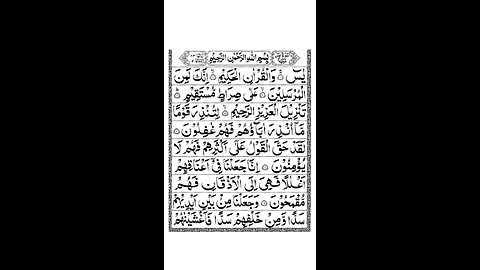 بِسْمِ اللهِ الرَّحْمٰنِ الرَّحِيْمِ
يٰسٓ ۚ وَالْقُرْاٰنِ الْحَكِيْمِ ۙ اِنَّكَ لَمِنَ
الْمُرْسَلِيْنَ ۙ عَلٰى صِرَاطٍ مُّسْتَقِيْمٍ ؕ
تَنْزِيْلَ الْعَزِيْزِ الرَّحِيْمِ ۙ لِتُنْذِرَ قَوْمًا
مَّاۤ اُنْذِرَ اٰبَآؤُهُمْ فَهُمْ غٰفِلُوْنَ
لَقَدْ حَقَّ الْقَوْلُ عَلٰۤى اَكْثَرِهِمْ فَهُمْ لَا
يُؤْمِنُوْنَ اِنَّا جَعَلْنَا فِيْۤ اَعْنَاقِهِمْ
اَغْلٰلًا فَهِيَ اِلَى الْاَذْقَانِ فَهُمْ
مُّقْمَحُوْنَ وَجَعَلْنَا مِنْۢ بَيْنِ اَيْدِيْهِمْ
سَدًّا وَّمِنْ خَلْفِهِمْ سَدًّا فَاَغْشَيْنٰهُمْ